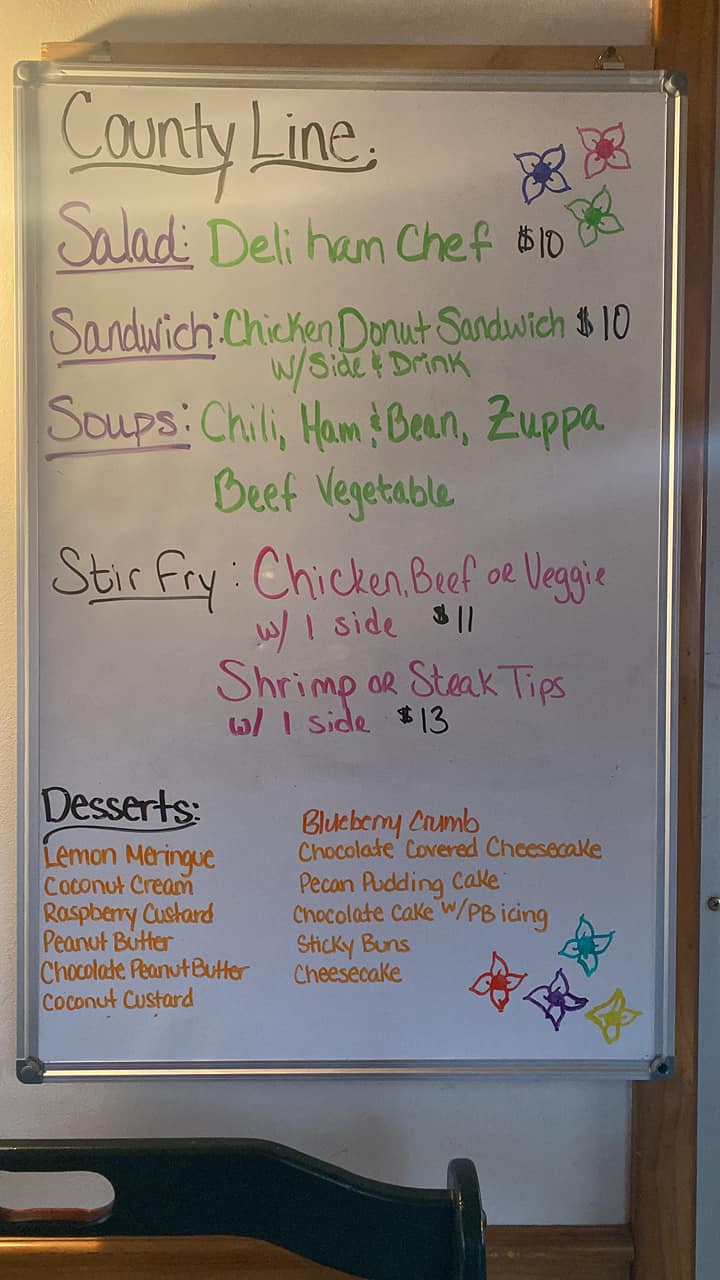 County Line.
Salad: Deli ham Chef $10
Sandwich: Chicken Donut Sandwich $10
w/Side & Drink
Soups: Chili, Ham & Bean, Zuppa
Beef Vegetable
Stir Fry: Chicken, Beef or Veggie
w/ 1 side $11
Shrimp or Steak Tips
w/ 1 side $13
Desserts:
Lemon Meringue
Coconut Cream
Raspberry Custard
Peanut Butter
Chocolate Peanut Butter
Coconut Custard
Blueberry Crumb
Chocolate Covered Cheesecake
Pecan Pudding Cake
Chocolate Cake w/PB icing
Sticky Buns
Cheesecake